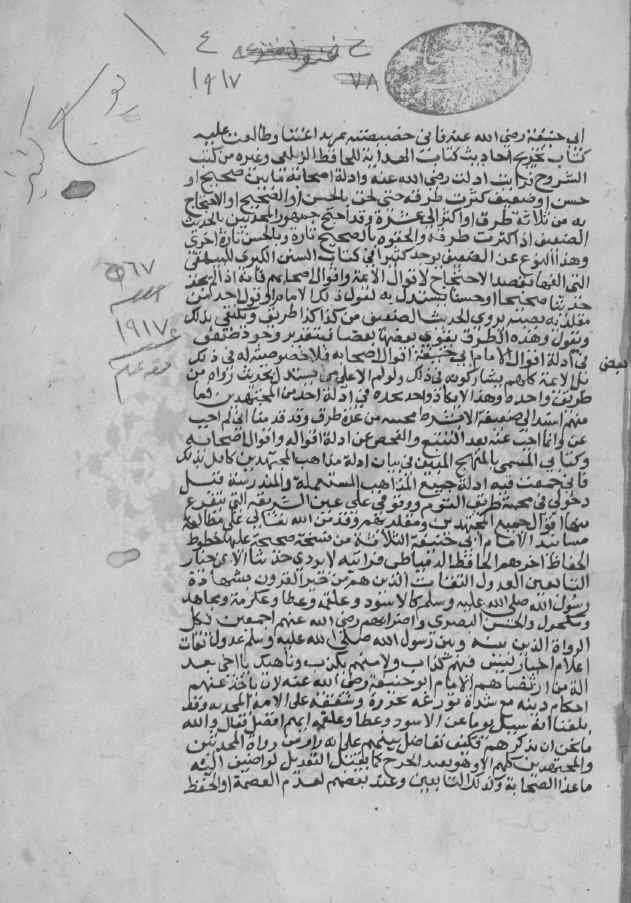 ٤
١٩١٧
٧٨
ابي حنيفة رضي الله عنه فاني خصيصته بمزيد اعتنا وطالعت عليه
كتاب تخريج احاديث كتاب الهداية للحافظ الزيلعي وغيره من كتب
الشروح فرايت ادلته رضي الله عنه وادلة اصحابه ما بين صحيح او
حسن او ضعيف كثرت طرقه حتى لحق بالحسن او الصحيح في صحة الاحتجاج
به من ثلاثة طرق او اكثر الى عشرة وقد احتج جمهور المحدثين بالحديث
الضعيف اذا كثرت طرقه والحقوه بالصحيح تارة وبالحسن تارة اخرى
وهذا النوع من الضعيف يوجد كثيرا في كتاب السنن الكبرى للبيهقي
التي الفها بقصد الاحتجاج لاقوال الائمة واقوال اصحابهم فانه اذا لم يجد
حديثا صحيحا او حسنا يستدل به لقول ذلك الامام او قول احد من
مقلديه يصير يروي الحديث الضعيف من كذا كذا طريقا ويكتفي بذلك
ويقول وهذه الطرق يقوي بعضها بعضا فبتقدير وجود ضعف
في ادلة اقوال الامام ابي حنيفة اقوال اصحابه فلا خصوصية له في ذلك
بل الائمة كلهم يشاركونه في ذلك ولا لوم الا على من يستدل بحديث رواه من
طريق واحد وهذا لا يكاد احد يجده في ادلة احد من المجتهدين فما
منهم استدل بضعيف الا بشرط مجيئه من عدة طرق وقد قدمنا اني لم اجب
عن وانما اجبت عنه بعد التتبع والفحص عن ادلة اقواله واقوال اصحابه
وكتابي المسمى بالمنهج المبين في بيان ادلة مذاهب المجتهدين كافل بذلك
فاني جمعت فيه ادلة جميع المذاهب المستعملة والمندرسة قبل
دخولي في محبة طريق القوم ووقوفي على عين الشريعة التي يتفرع
منها اقوال جميع المجتهدين ومقلديهم وقد من الله تعالى علي بمطالعة
مسانيد الامام ابي حنيفة الثلاثة من نسخة صحيحة عليها خطوط
الحفاظ اخرهم الحافظ الدمياطي فرايته لا يروي حديثا الا عن خيار
التابعين العدول الثقات الذين هم من خير القرون بشهادة
رسول الله صلى الله عليه وسلم كالاسود وعلقمة وعطا وعكرمة ومجاهد
ومكحول والحسن البصري واضرابهم رضي الله عنهم اجمعين فكل
الرواة الذين بينه وبين رسول الله صلى الله عليه وسلم عدول ثقات
اعلام اخيار ليس فيهم كذاب ولا متهم بكذب وناهيك يا اخي بعد
الة من ارتضاهم الامام ابو حنيفة رضي الله عنه لان ياخذ عنهم
احكام دينه مع شدة تورعه تحرزه وشفقته على الامة المحمدية وقد
بلغنا انه سئل يوما عن الاسود وعطا وعلقمة ايهم افضل فقال والله
ما نحن ان نذكرهم فكيف نفاضل بينهم على انه ما من راو من رواة المحدثين
والمجتهدين كلهم الا وهو يقبل الجرح كما يقبل التعديل لو اضيف اليه
ما عدا الصحابة وكذلك التابعين وعند بعضهم لعدم العصمة او الحفظ
٥٦٧
١٩١٧
بعض